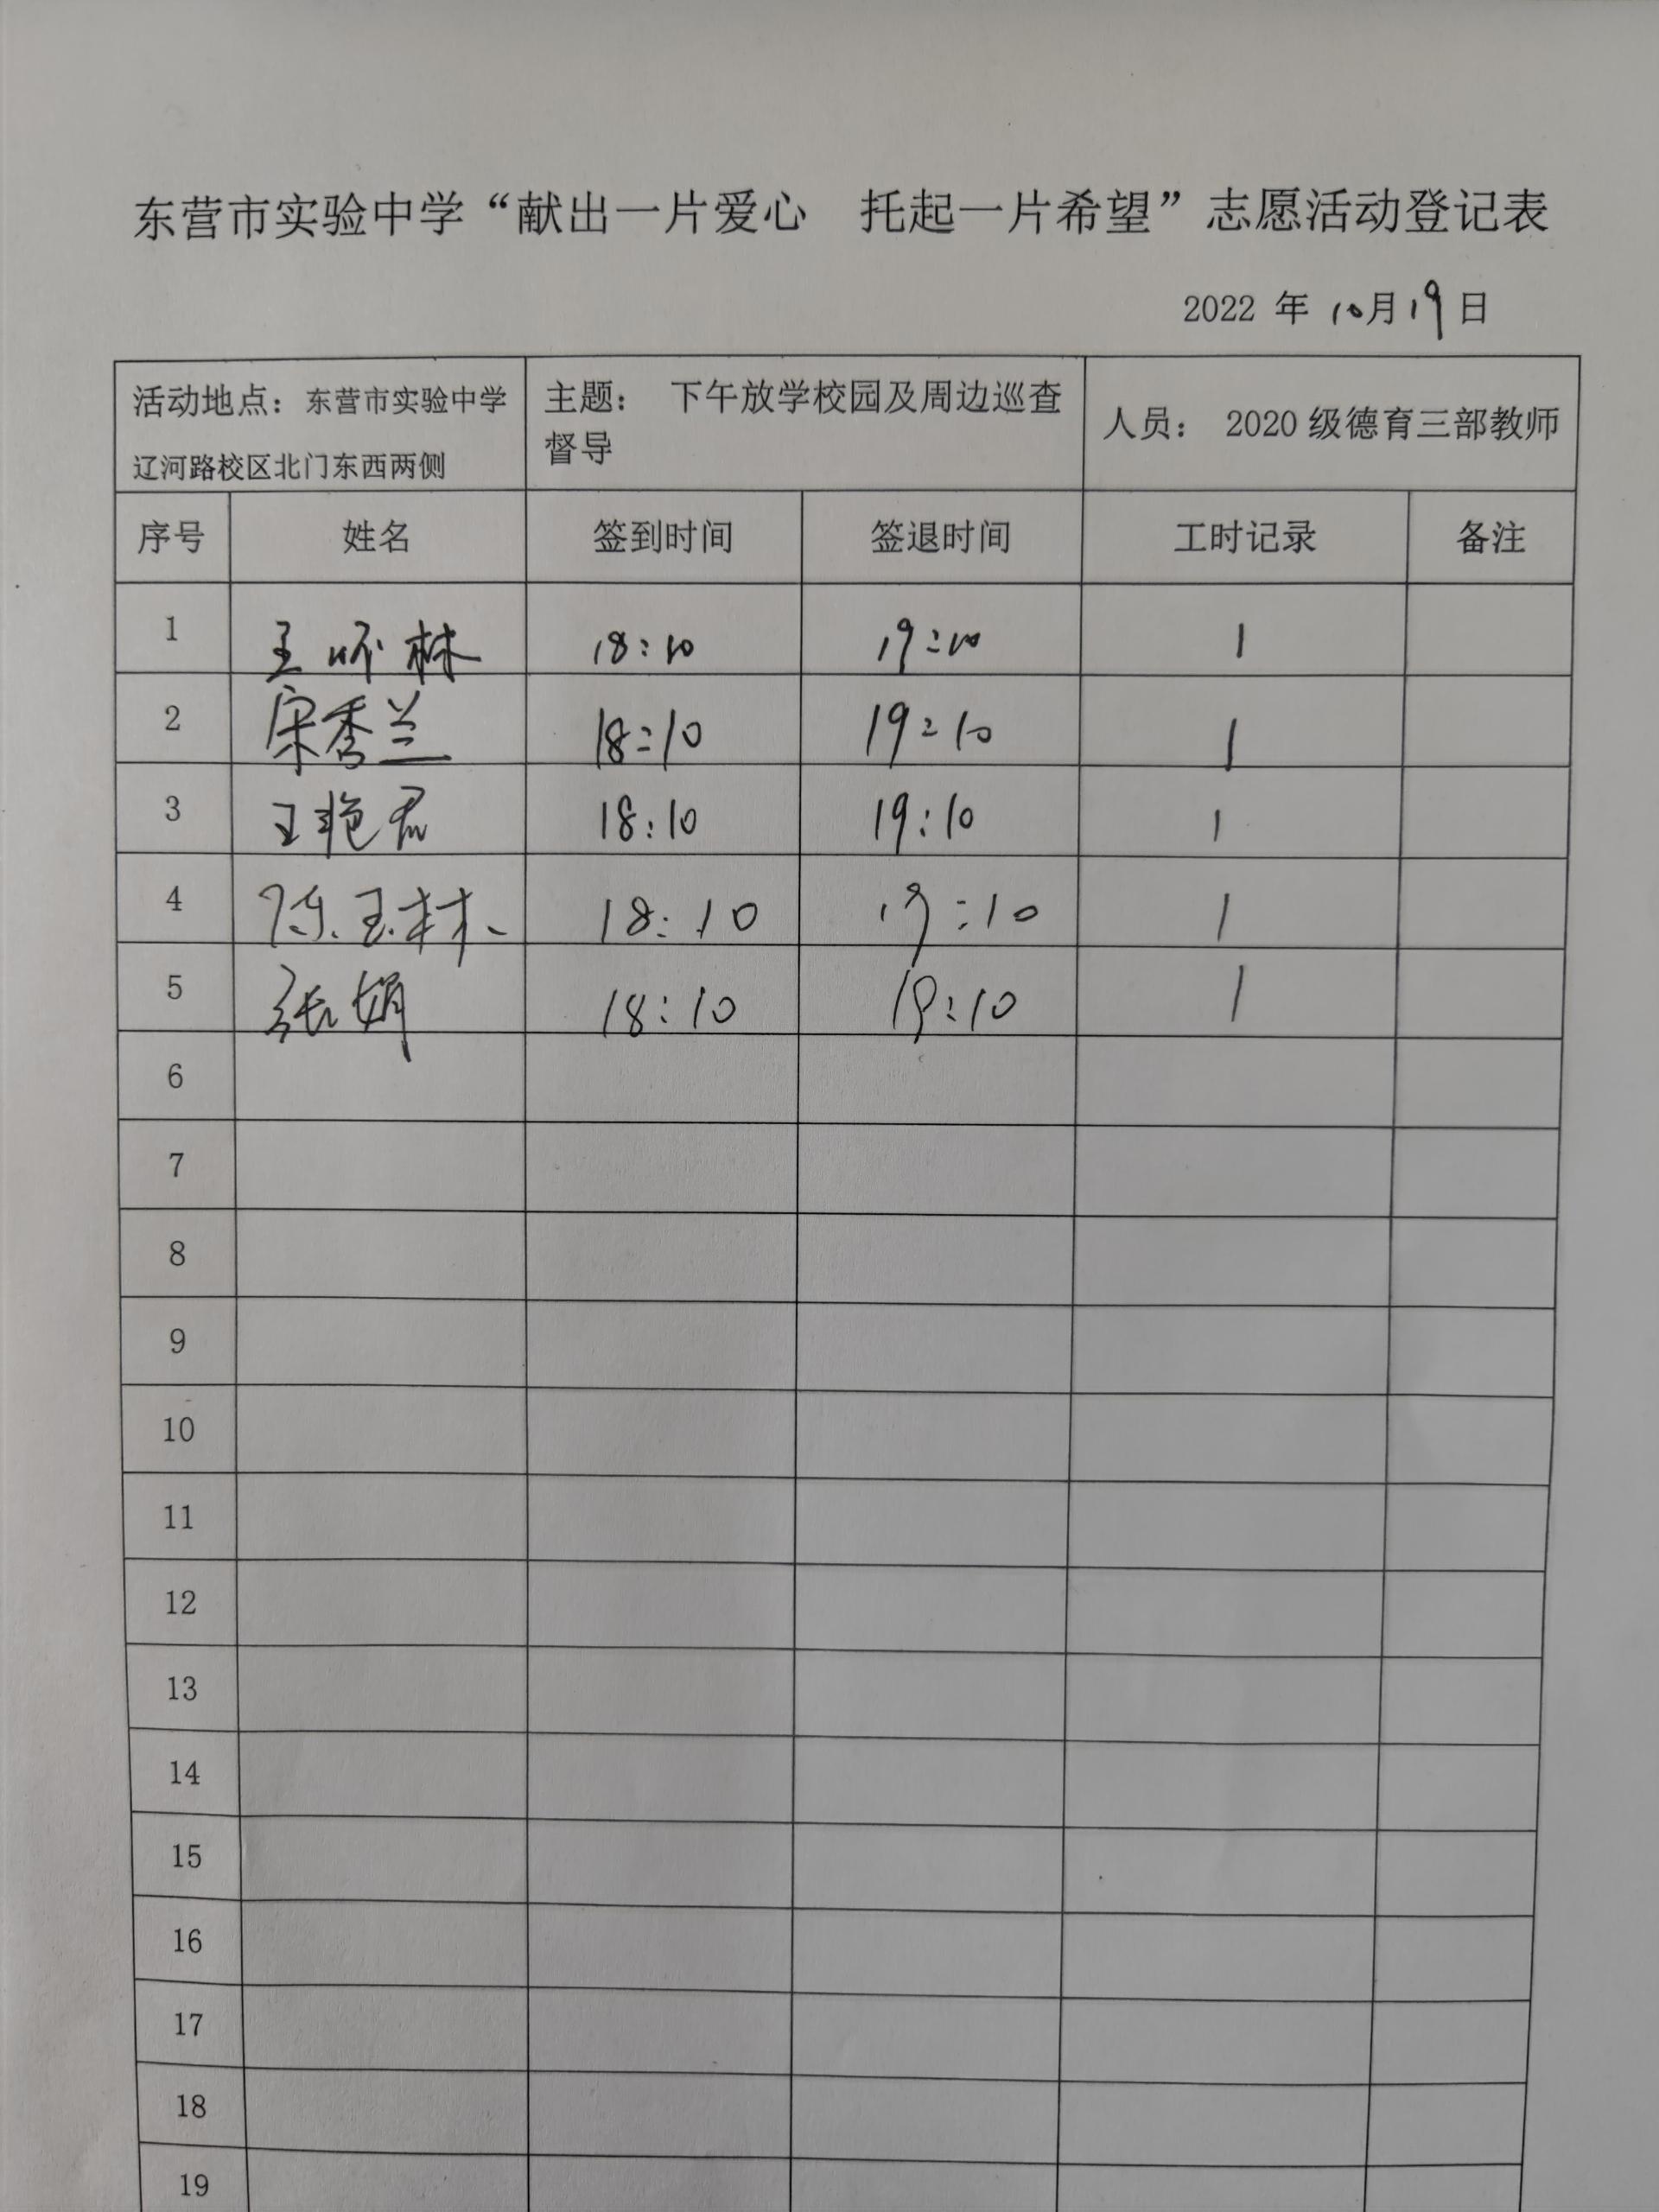 东营市实验中学“献出一片爱心 托起一片希望”志愿活动登记表
2022 年 10月19日
活动地点：东营市实验中学
辽河路校区北门东西两侧
主题： 下午放学校园及周边巡查
督导
人员： 2020 级德育三部教师
序号 姓名 签到时间 签退时间 工时记录 备注
1 王怀林 18:10 19:10 1
2 宋秀兰 18:10 19:10 1
3 王艳君 18:10 19:10 1
4 陈玉林 18:10 19:10 1
5 张娟 18:10 19:10 1
6
7
8
9
10
11
12
13
14
15
16
17
18
19